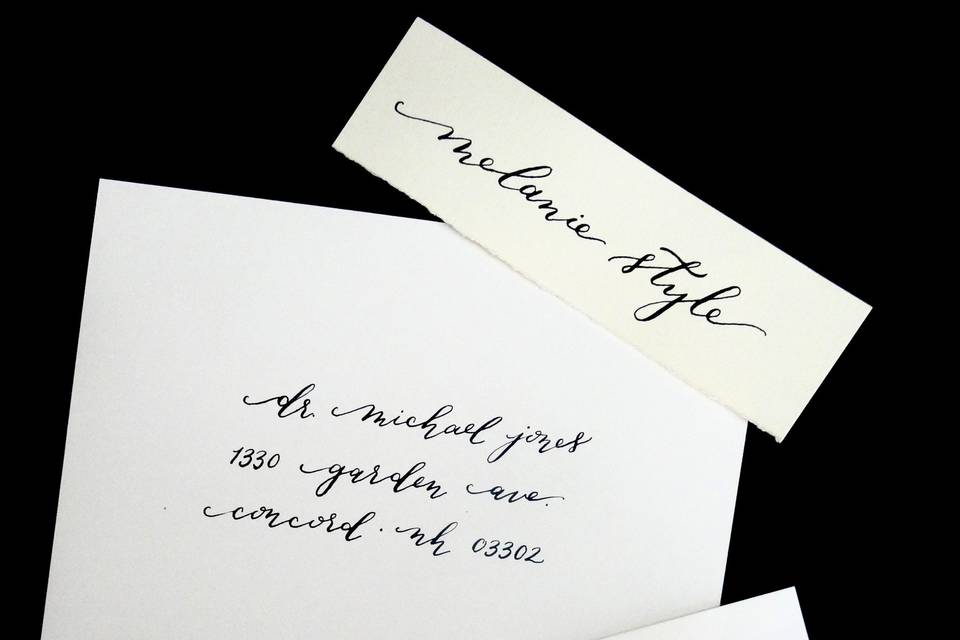 melanie style
dr. michael jones
1330 garden ave.
concord · nh 03302